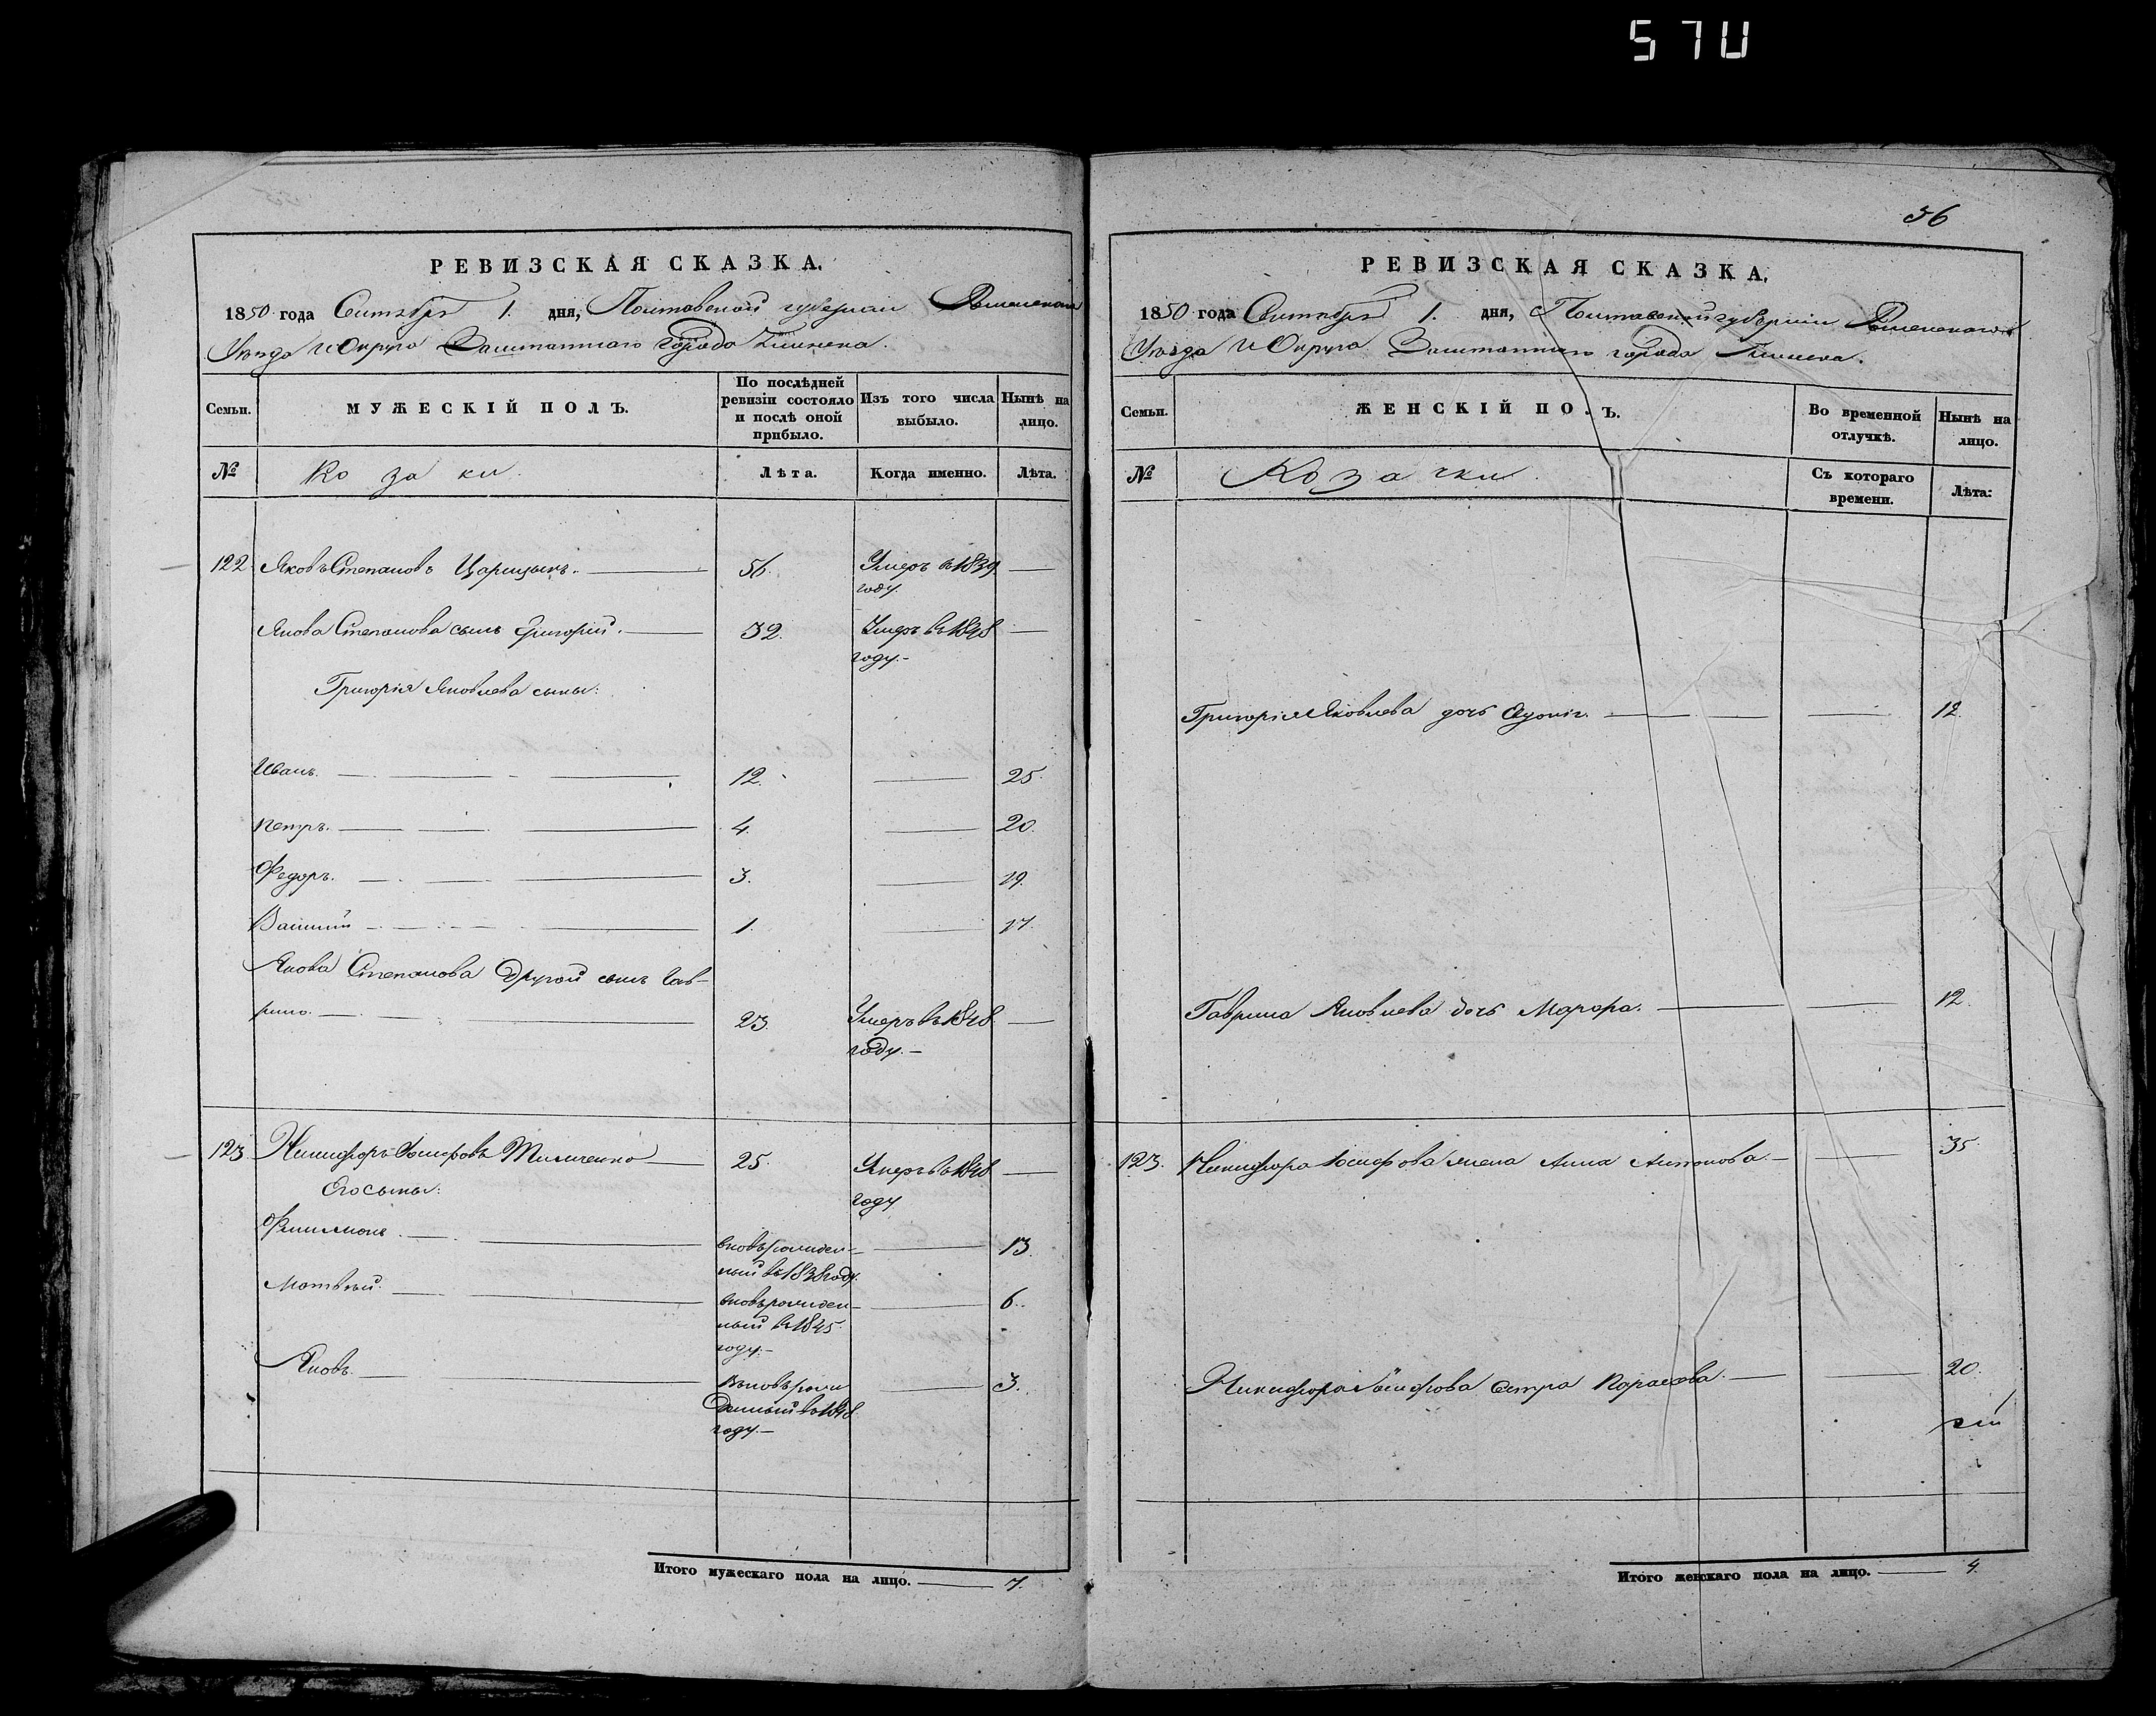 570
РЕВИЗСКАЯ СКАЗКА.
1850 года Сентября 1. дня, Полтавской губернии
Уѣзда и Округа Заштатнаго города Глинска.
Семьи.
МУЖЕСКІЙ ПОЛЪ.
По послѣдней ревизіи состояло и послѣ оной прибыло.
Изъ того числа выбыло.
Нынѣ на лицо.
№
Козаки.
Лѣта.
Когда именно.
Лѣта.
122 Яковъ Степановъ Царицынъ. 56. Умеръ въ 1839 году.
Якова Степанова сынъ Григорій. 32. Умеръ въ 1848 году.
Григорія Яковлева сыны:
Иванъ. 12. 25.
Петръ. 4. 20.
Федоръ. 3. 19.
Василий 1. 17.
Якова Степанова другой сынъ Гав-
рило. 23. Умеръ въ 1848 году.
123 Никифоръ Іосифовъ 25. Умеръ въ 1848 году
Его сыны:
Филимонъ. вновьрожден-
ный въ 1838 году. 13.
Матвѣй. вновьрожден-
ный въ 1845 году. 6.
Яковъ. вновьрож
денный въ 1848 году. 3.
Итого мужескаго пола на лицо. 7.
56
РЕВИЗСКАЯ СКАЗКА.
1850 года Сентября 1. дня, Полтавской губерніи
Уѣзда и Округа Заштатнаго города Глинска.
Семьи.
ЖЕНСКІЙ ПОЛЪ.
Во временной отлучкѣ.
Нынѣ на лицо.
№
Козачки.
Съ котораго времени.
Лѣта:
Григорія Яковлева дочь 12.
Гаврила Яковлева дочь 12.
123. Никифора Іосифова жена Анна Антонова. 35.
Никифора Іосифова сестра 20.
Итого женскаго пола на лицо. 4.